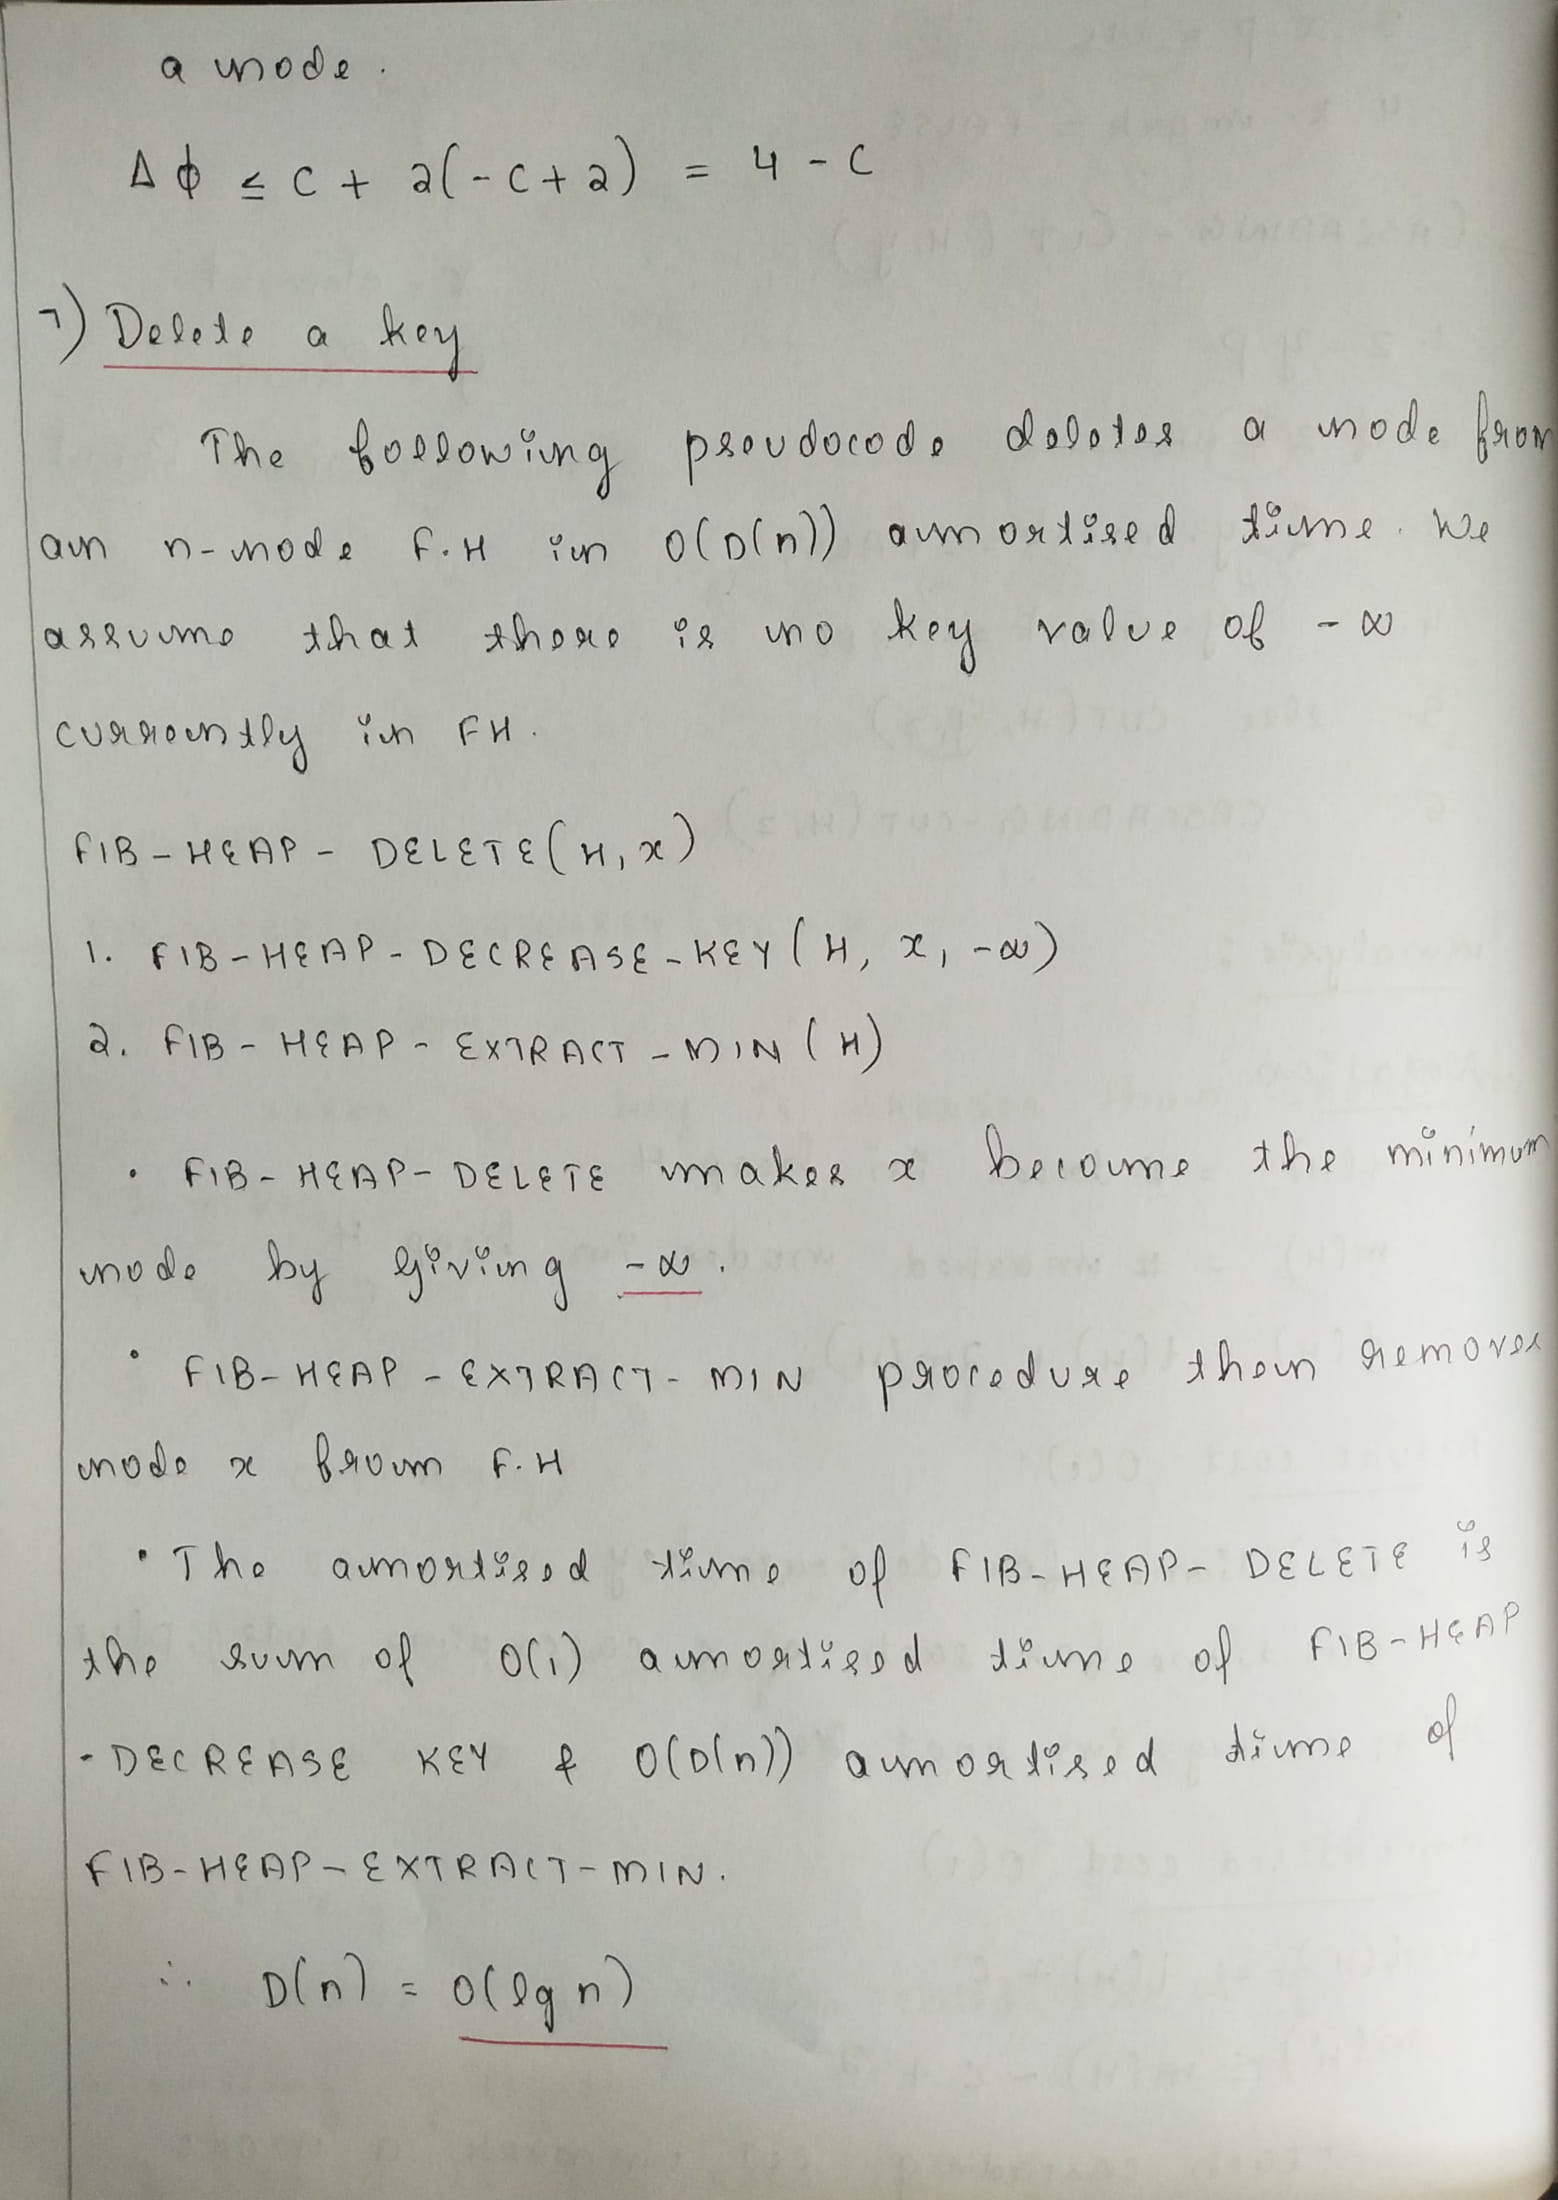 a node.
Δϕ ≤ c + 2(-c+2) = 4 - c
7) Delete a key
The following pseudocode deletes a node from
an n-node F.H in O(D(n)) amortised time. We
assume that there is no key value of -∞
currently in FH.
FIB-HEAP-DELETE(H,x)
1. FIB-HEAP-DECREASE-KEY(H, x, -∞)
2. FIB-HEAP-EXTRACT-MIN(H)
• FIB-HEAP-DELETE makes x become the minimum
node by giving -∞.
• FIB-HEAP-EXTRACT-MIN procedure then removes
node x from F.H
• The amortised time of FIB-HEAP-DELETE is
the sum of O(1) amortised time of FIB-HEAP
-DECREASE KEY & O(D(n)) amortised time of
FIB-HEAP-EXTRACT-MIN.
∴ D(n) = O(lg n)